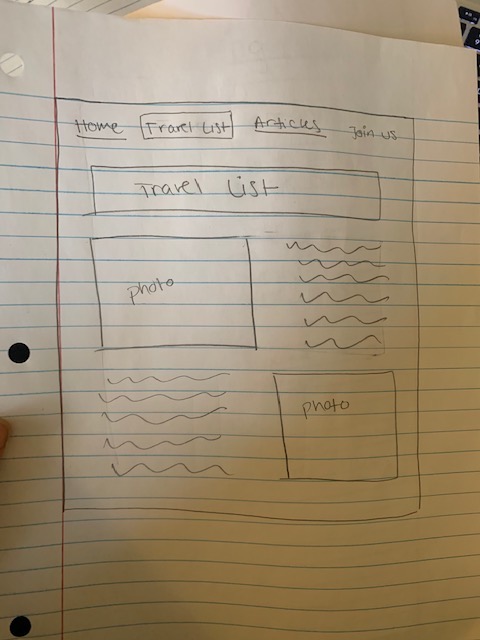 Home Travel List Articles Join us
Travel List
photo
photo